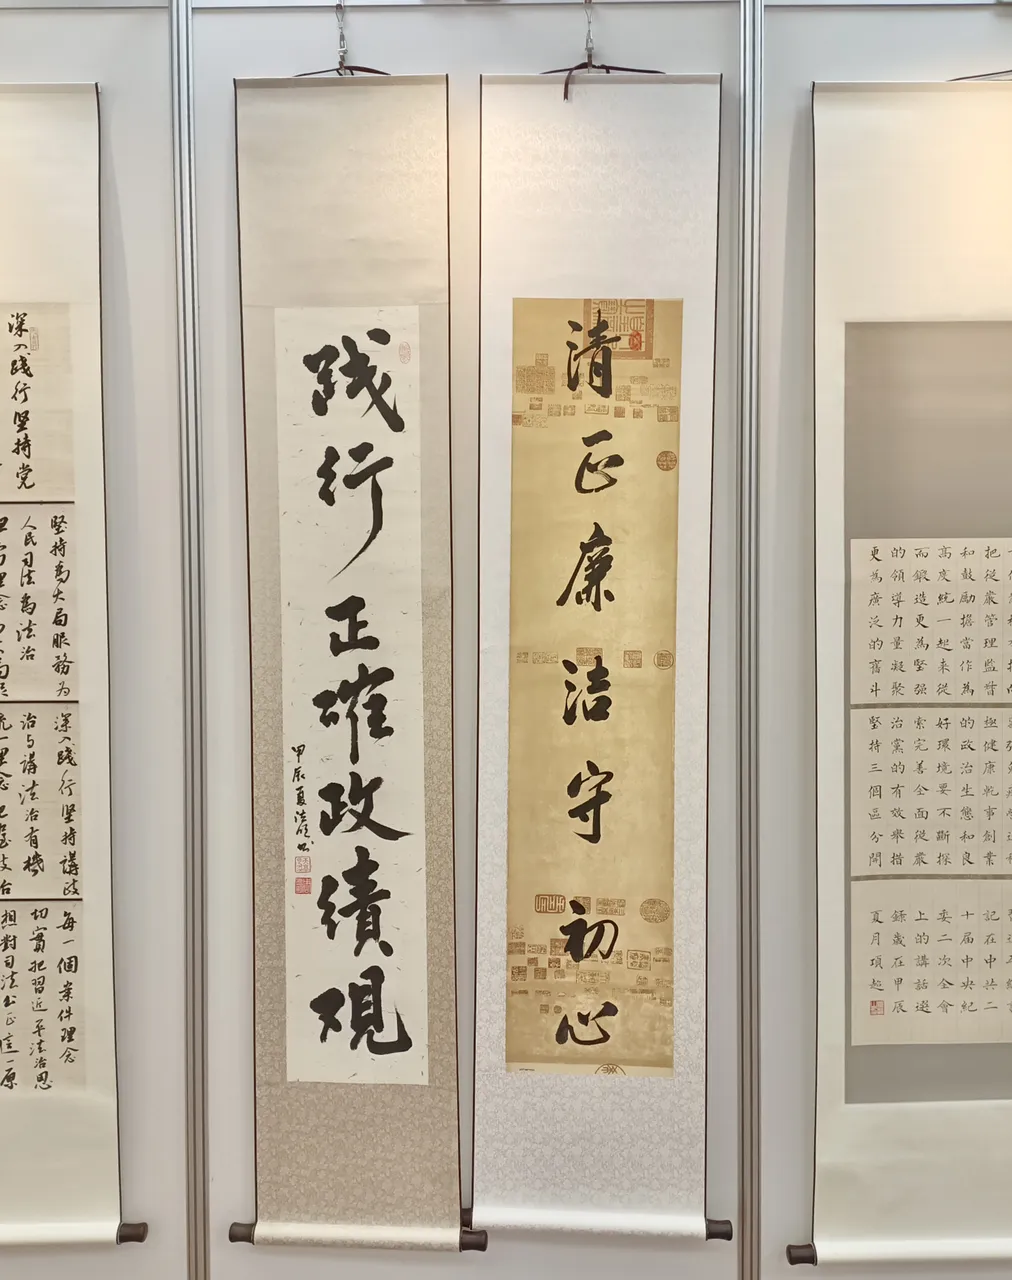 深入践行坚持党
堅持為大局服務为
人民司法為法治
深入践行坚持講政
治与講法治有機
每一個案件理念
切實把習近平法治思
想對司法公正這一原
践行正確政績观
甲辰夏
清正廉洁守初心
把從嚴管理監督
和鼓勵擔當作為
高度統一起来從
而鍛造更為堅强
的領導力量凝聚
更為廣泛的奮斗
極健康乾事創業
的政治生態和良
好環境要不斷探
索完善全面從嚴
治黨的有效舉措
堅持三個區分開
記在中共二
十届中央紀
委二次全會
上的講話選
錄歲在甲辰
夏月項起